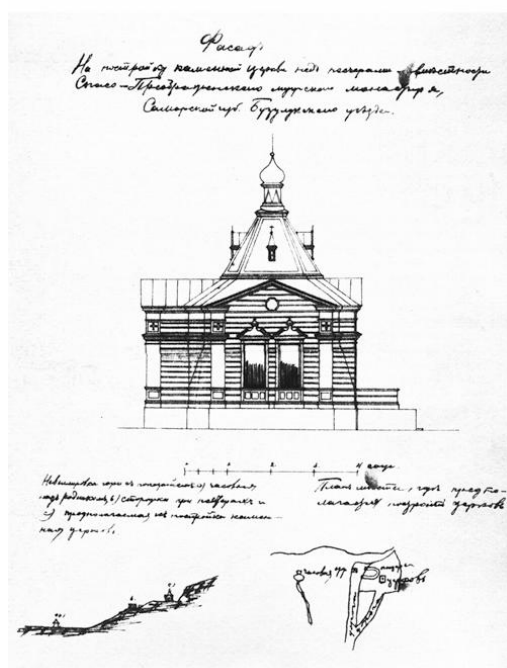 Фасадъ
На постройку каменной церкви надъ пещерами въ мѣстности
Спасо-Преображенскаго мужского монастыря,
Самарской губ. Бузулукского уѣзда.
1 0 1 2 3 4 саж
Нивелировка горы съ показанiемъ а) часовни
надъ родникомъ, б) сторожки при пещерахъ и
в) предполагаемая къ постройкѣ камен-
ная церковь.
Планъ мѣста, гдѣ предпо-
лагается построить церковь
часовня
церковь